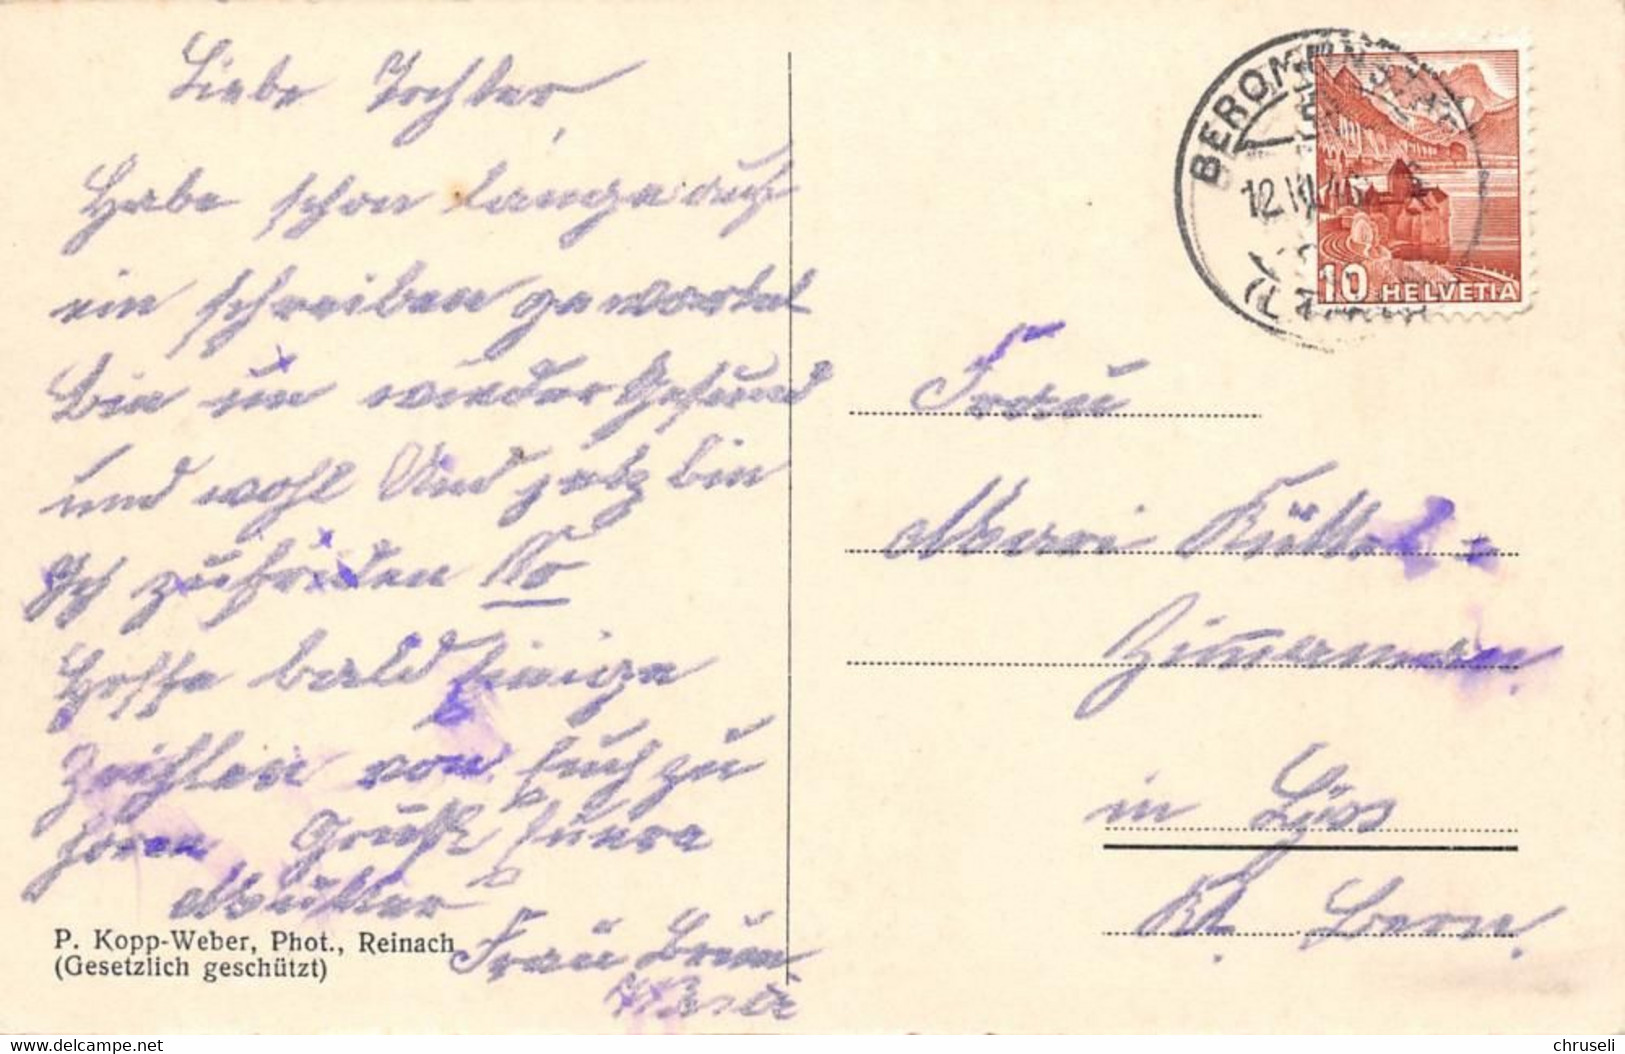 Liebe Tochter,
Habe schon lange auf
ein schreiben gewartet
Bin im wieder Gesund
und wohl Und jetz bin
Ich zufriden
Hoffe bald einige
Zeihlen von Euch zu
hören Grüsse Euere
Mutter
Frau
P. Kopp-Weber, Phot., Reinach
(Gesetzlich geschützt)
BEROMÜNSTER
12.
10 HELVETIA
Frau
Marie
Zimerman
in Lÿss
Kt. Bern.
delcampe.net
chruseli